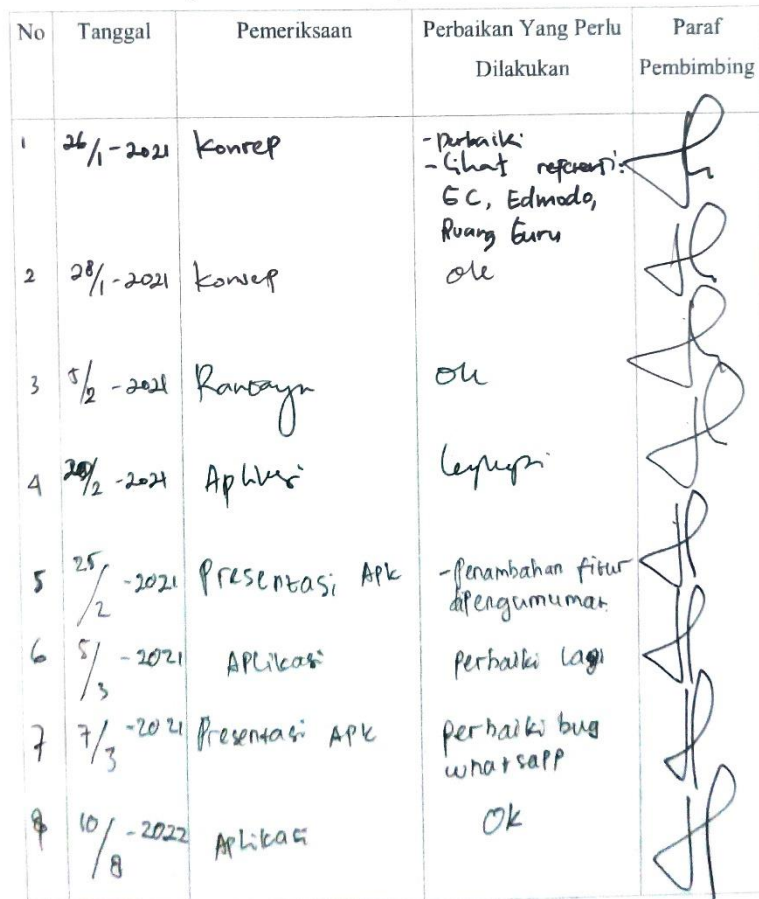 No Tanggal Pemeriksaan Perbaikan Yang Perlu Dilakukan Paraf Pembimbing
1 26/1-2021 Konsep -Perbaiki
-Lihat referensi:
GC, Edmodo,
Ruang Guru
2 28/1-2021 Konsep ok
3 5/2-2021 ok
4 20/2-2021 Aplikasi lengkapi
5 25/2-2021 Presentasi APK -Penambahan fitur
dipengumuman
6 5/3-2021 Aplikasi Perbaiki lagi
7 7/3-2021 Presentasi APK perbaiki bug
whatsapp
8 10/8-2022 Aplikasi Ok